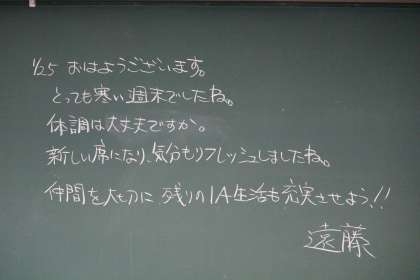 1/25 おはようございます。
とっても寒い週末でしたね。
体調は大丈夫ですか。
新しい席になり、気分もリフレッシュしましたね。
仲間を大切に 残りの1A生活も充実させよう!!
遠藤